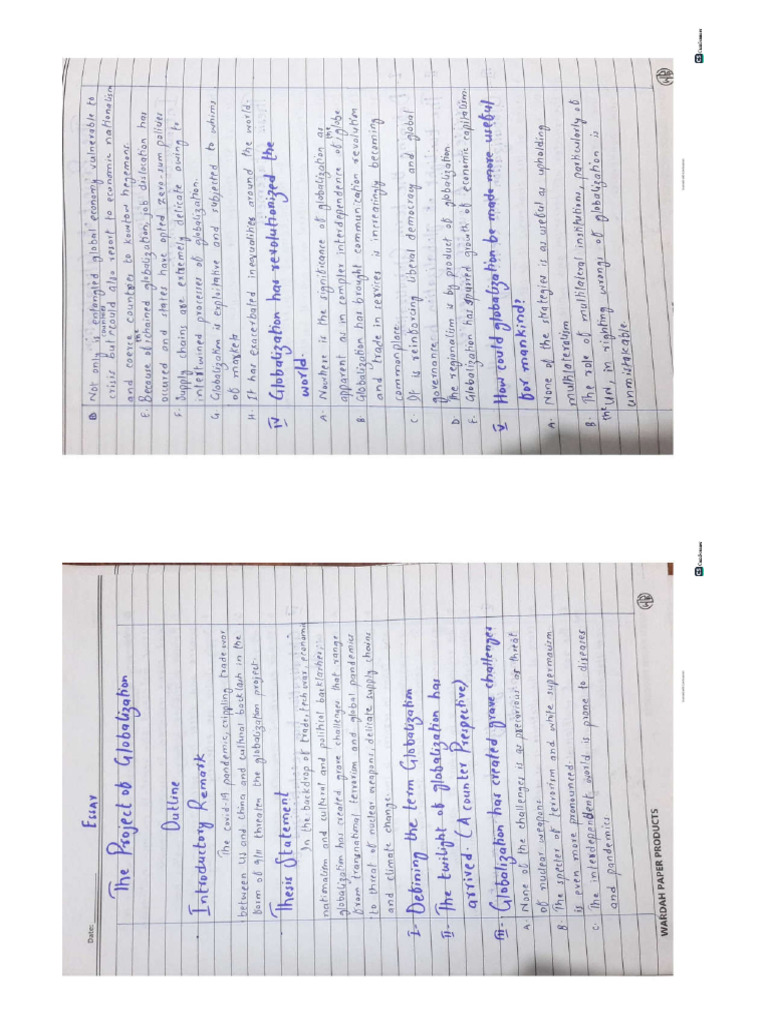 Date:
ESSAY
The Project of Globalization
Outline
Introductory Remark
The covid-19 pandemic, crippling trade war
between US and china and cultural backlash in the
form of 9/11 threaten the globalization project.
Thesis Statement
In the backdrop of trade, tech war, economic
nationalism and cultural and political backlashes,
globalization has created grave challenges that range
from transnational terrorism and global pandemics
to threat of nuclear weapons, delicate supply chains
and climate change.
I- Defining the term Globalization
II- The twilight of globalization has
arrived. (A counter Perspective)
III- Globalization has created grave challenges
A. None of the challenges is as precarious as threat
of nuclear weapons.
B. The specter of terrorism and white supermacism
is even more pronounced.
C. The interdependent world is prone to diseases
and pandemics
WARDAH PAPER PRODUCTS
CS CamScanner
D Not only is entangled global economy vulnerable to
crisis but countries could also resort to economic nationalism
and coerce countries to kowtow hegemons.
E. Because of the chained globalization, job dislocation has
occured and states have opted zero-sum policies
F. Supply chains are extremely delicate owing to
intertwined processes of globalization.
G Globalization is exploitative and subjected to whims
of markets
H. It has exacerbated inequalities around the world.
IV Globalization has revolutionized the
world.
A. Nowhere is the significance of globalization as
apparent as in complex interdependence of the globe
B. Globalization has brought communication revolution
and trade in services is increasingly becoming
commonplace.
C. It is reinforcing liberal democracy and global
governance
D The regionalism is by product of globalization
E. Globalization has spurred growth of economic capitalism.
V How could globalization be made more useful
for mankind?
A. None of the strategies is as useful as upholding
multilateralism
B. The role of multilateral institutions, particularly of
the UN, in righting wrongs of globalization is
unmistakable.
CS CamScanner